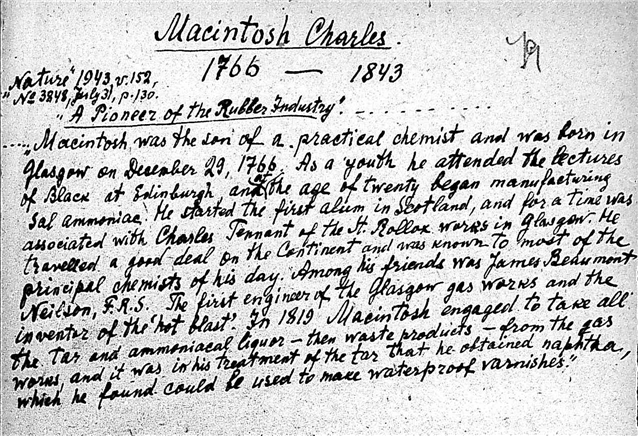 Macintosh Charles.
1766 — 1843
"Nature" 1943, v. 152,
No 3848, July 31, p. 130.
"A Pioneer of the Rubber Industry".
....."Macintosh was the son of a practical chemist and was born in
Glasgow on December 29, 1766. As a youth he attended the lectures
of Black at Edinburgh and at the age of twenty began manufacturing
sal ammoniac. He started the first alum in Scotland, and for a time was
associated with Charles Tennant of the St. Rollox works in Glasgow. He
travelled a good deal on the Continent and was known to most of the
principal chemists of his day. Among his friends was James Beaumont
Neilson, F.R.S. The first engineer of the Glasgow gas works and the
inventor of the 'hot blast'. In 1819 Macintosh engaged to take all
the tar and ammoniacal liquor – then waste products – from the gas
works, and it was in his treatment of the tar that he obtained naphtha,
which he found could be used to make waterproof varnishes."